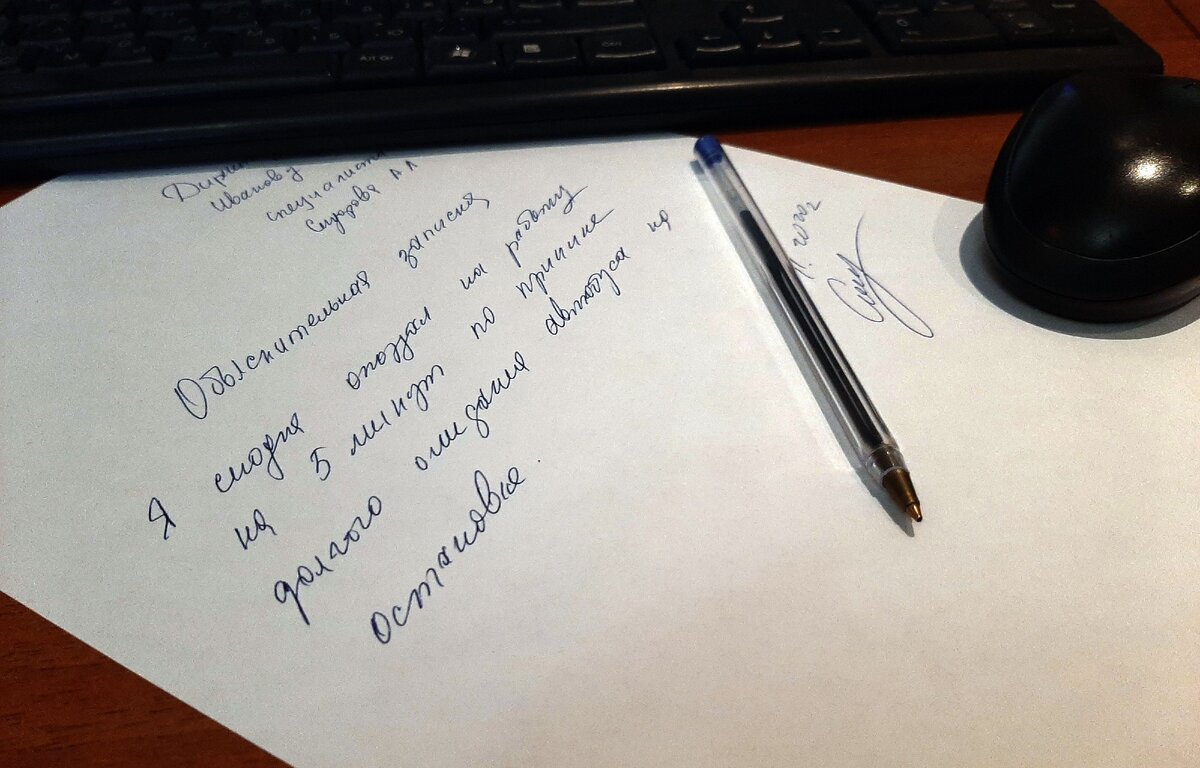 Иванову
специалиста
Сидорова А А
Объяснительная записка
Я сегодня опоздал на работу
на 5 минут по причине
долгого ожидания автобуса на
остановке.
2020г